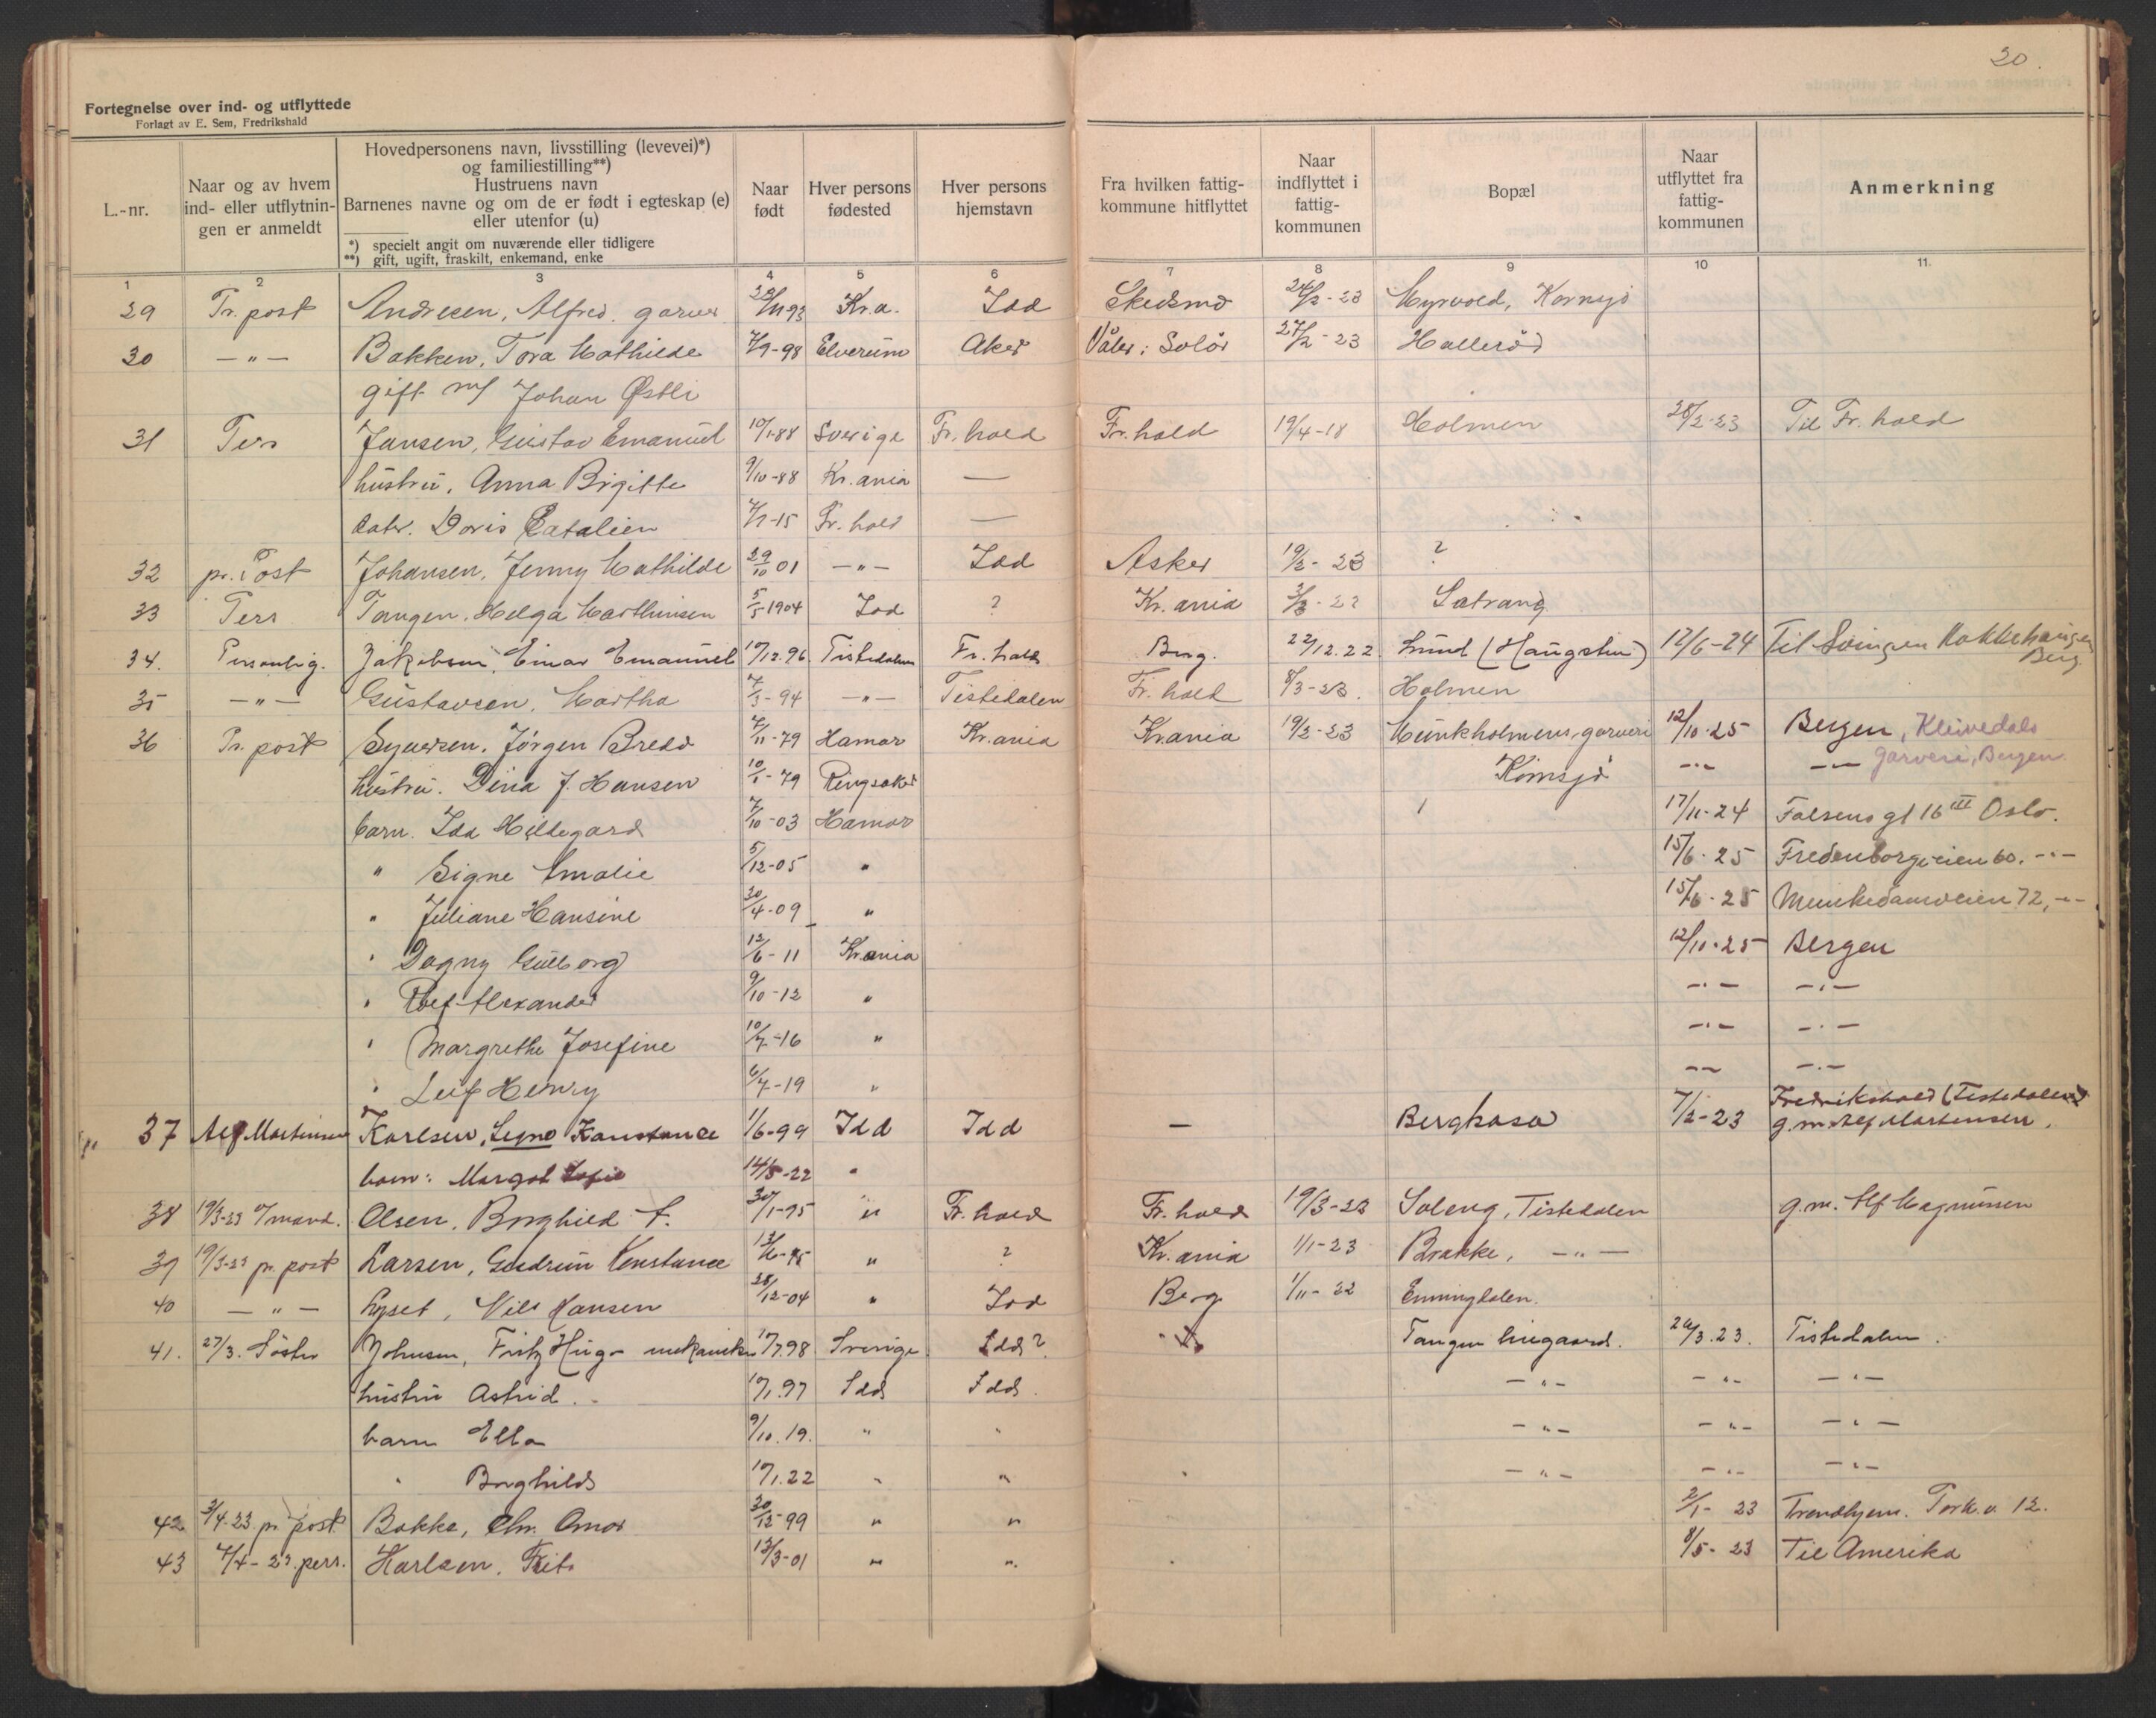 20.
Fortegnelse over ind- og utflyttede
Forlagt av E. Sem, Fredrikshald
L.-nr.
Naar og av hvem ind- eller utflytnin- gen er anmeldt
Hovedpersonens navn, livsstilling (levevei)*)
og familiestilling**)
Hustruens navn
Barnenes navne og om de er født i egteskap (e)
eller utenfor (u)
*) specielt angit om nuværende eller tidligere
**) gift, ugift, fraskilt, enkemand, enke
Naar født
Hver persons fødested
Hver persons hjemstavn
Fra hvilken fattig- kommune hitflyttet
Naar indflyttet i fattig- kommunen
Bopæl
Naar utflyttet fra fattig- kommunen
Anmerkning
1 2 3 4 5 6 7 8 9 10 11.
29 Pr. post Andresen, Alfred. garver Kr.a. Idd Skedsmo 24/2-23 Myrvold, Kornsjø
30 —"— Bakken, Tora Mathilde 7/9-98 Elverum Aker Våler i Solør 27/2-23 Hallerød
gift m/ Johan Østli
31 Pers Jansen, Gustav Emanuel 10/1-88 Sverige Fr. hald Fr. hald 19/4-18 Holmen 28/2-23 Til Fr. hald
hustru. Anna Brigitte 9/10-88 Kr.ania —
datr. Doris 7/7-15 Fr. hald —
32 pr. Post Johansen, Jenny Mathilde 29/10 01 —"— Idd Asker 19/2-23 ?
33 Pers Tangen, Helga Marthinsen 5/5-1904 Idd ? Kr.ania Sætrang
34. Personlig. Jakobsen, Einar Emanuel 17/12.96. Tistedalen Fr. hald Berg. 22/12.22. Lund (Haugstu) 12/6-24 Til Svingen Kakkehaugen Berg
35 —"— Gustavsen, Martha 7/3-94 —"— Tistedalen Fr. hald 8/3-23. Holmen
36 Pr. post Syversen, Jørgen Bredo 7/11-79 Hamar Kr.ania Kr.ania 19/2-23 Munkholmens garveri 12/10-25 Bergen, Kleivedals
hustru. Dina J. Hansen 10/1-79 Ringsaker Kornsjø —"— —"— garveri, Bergen
barn. Ida Hildegard 7/10-03 Hamar 17/11-24 Falsens gt 16 III Oslo.
" Signe Amalie 5/12-05 " 15/6-25 Fredenborgveien 60. —"—
" Juliane Hansine 30/4-09 " 15/6-25 Munkedamsveien 72, —"—
" Dagny Gulborg 12/6-11 Kr.ania 12/10-25 Bergen
" Rolf Alexander 9/10-12 " —"— —"—
" Margrethe Josefine 10/7-16 " —"— —"—
" Leif Henry 6/7-19 " —"— —"—
37 Alf Martinsen Karlsen, Signe Konstance 1/6-99 Idd Idd — Bergkasa 7/2-23 Fredrikshald (Tistedalen) g.m. Alf Martensen.
barn: Margot Sofie 14/5-22 "
38 19/3-23 v/mand. Olsen, Borghild A. 30/1-95 " Fr. hald Fr. hald 19/3-23 Soleng, Tistedalen g.m. Alf Magnussen
39 19/3-23 pr. post Larsen, Gudrun Konstance " ? Kr.ania 1/1-23 Brakke, —"—
40 —"— Lyset, Nils Hansen 28/12-04 " Idd Berg 1/11-22 Enningdalen.
41. 27/3. Søster Johnsen, Fritz Hugo mekaniker 17/7.98 Sverige Idd? Tangen lingaard. 24/3.23. Tistedalen.
hustru Astrid. 17/1.97 Idd Idd. —"— —"— —"—
barn Ella 9/10.19. " " —"— —"— —"—
" Borghild 17/1.22 " " —"— —"— —"—
42 3/4-23 pr post Bakke, Chr. Omar 30/12-99 " " 2/1-23 Trondhjem. 12.
43 7/4-23. pers. Karlsen, 13/3-01 " " 8/5-23 Til Amerika